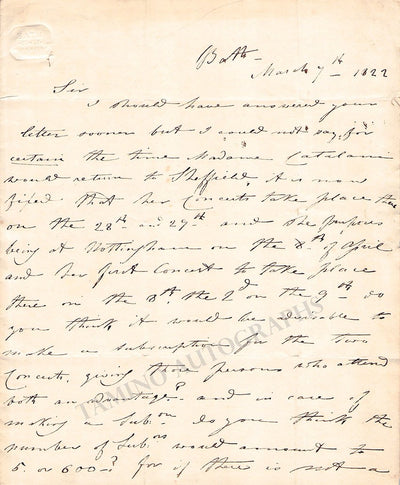 Bath –
March 7th – 1822
Sir
I should have answered your
letter sooner but I could not say for
certain the time Madame Catalani
would return to Sheffield, it is now
fixed that her Concerts take place there
on the 28th and 29th – and she purposes
being at Nottingham on the 8th of April
and her first Concert to take place
there on the 8th the 2d on the 9th – do
you think it would be advisable to
make a subscription for the two
Concerts, giving those persons who attend
both an advantage? – and in case of
making a Subon do you think the
number of Subons would amount to
5 or 600 –? for if there is not a
TAMINO AUTOGRAPHS